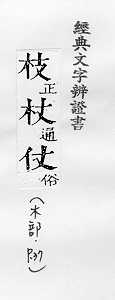 經典文字辨證書
枝正杖通仗俗
(木部.P37)